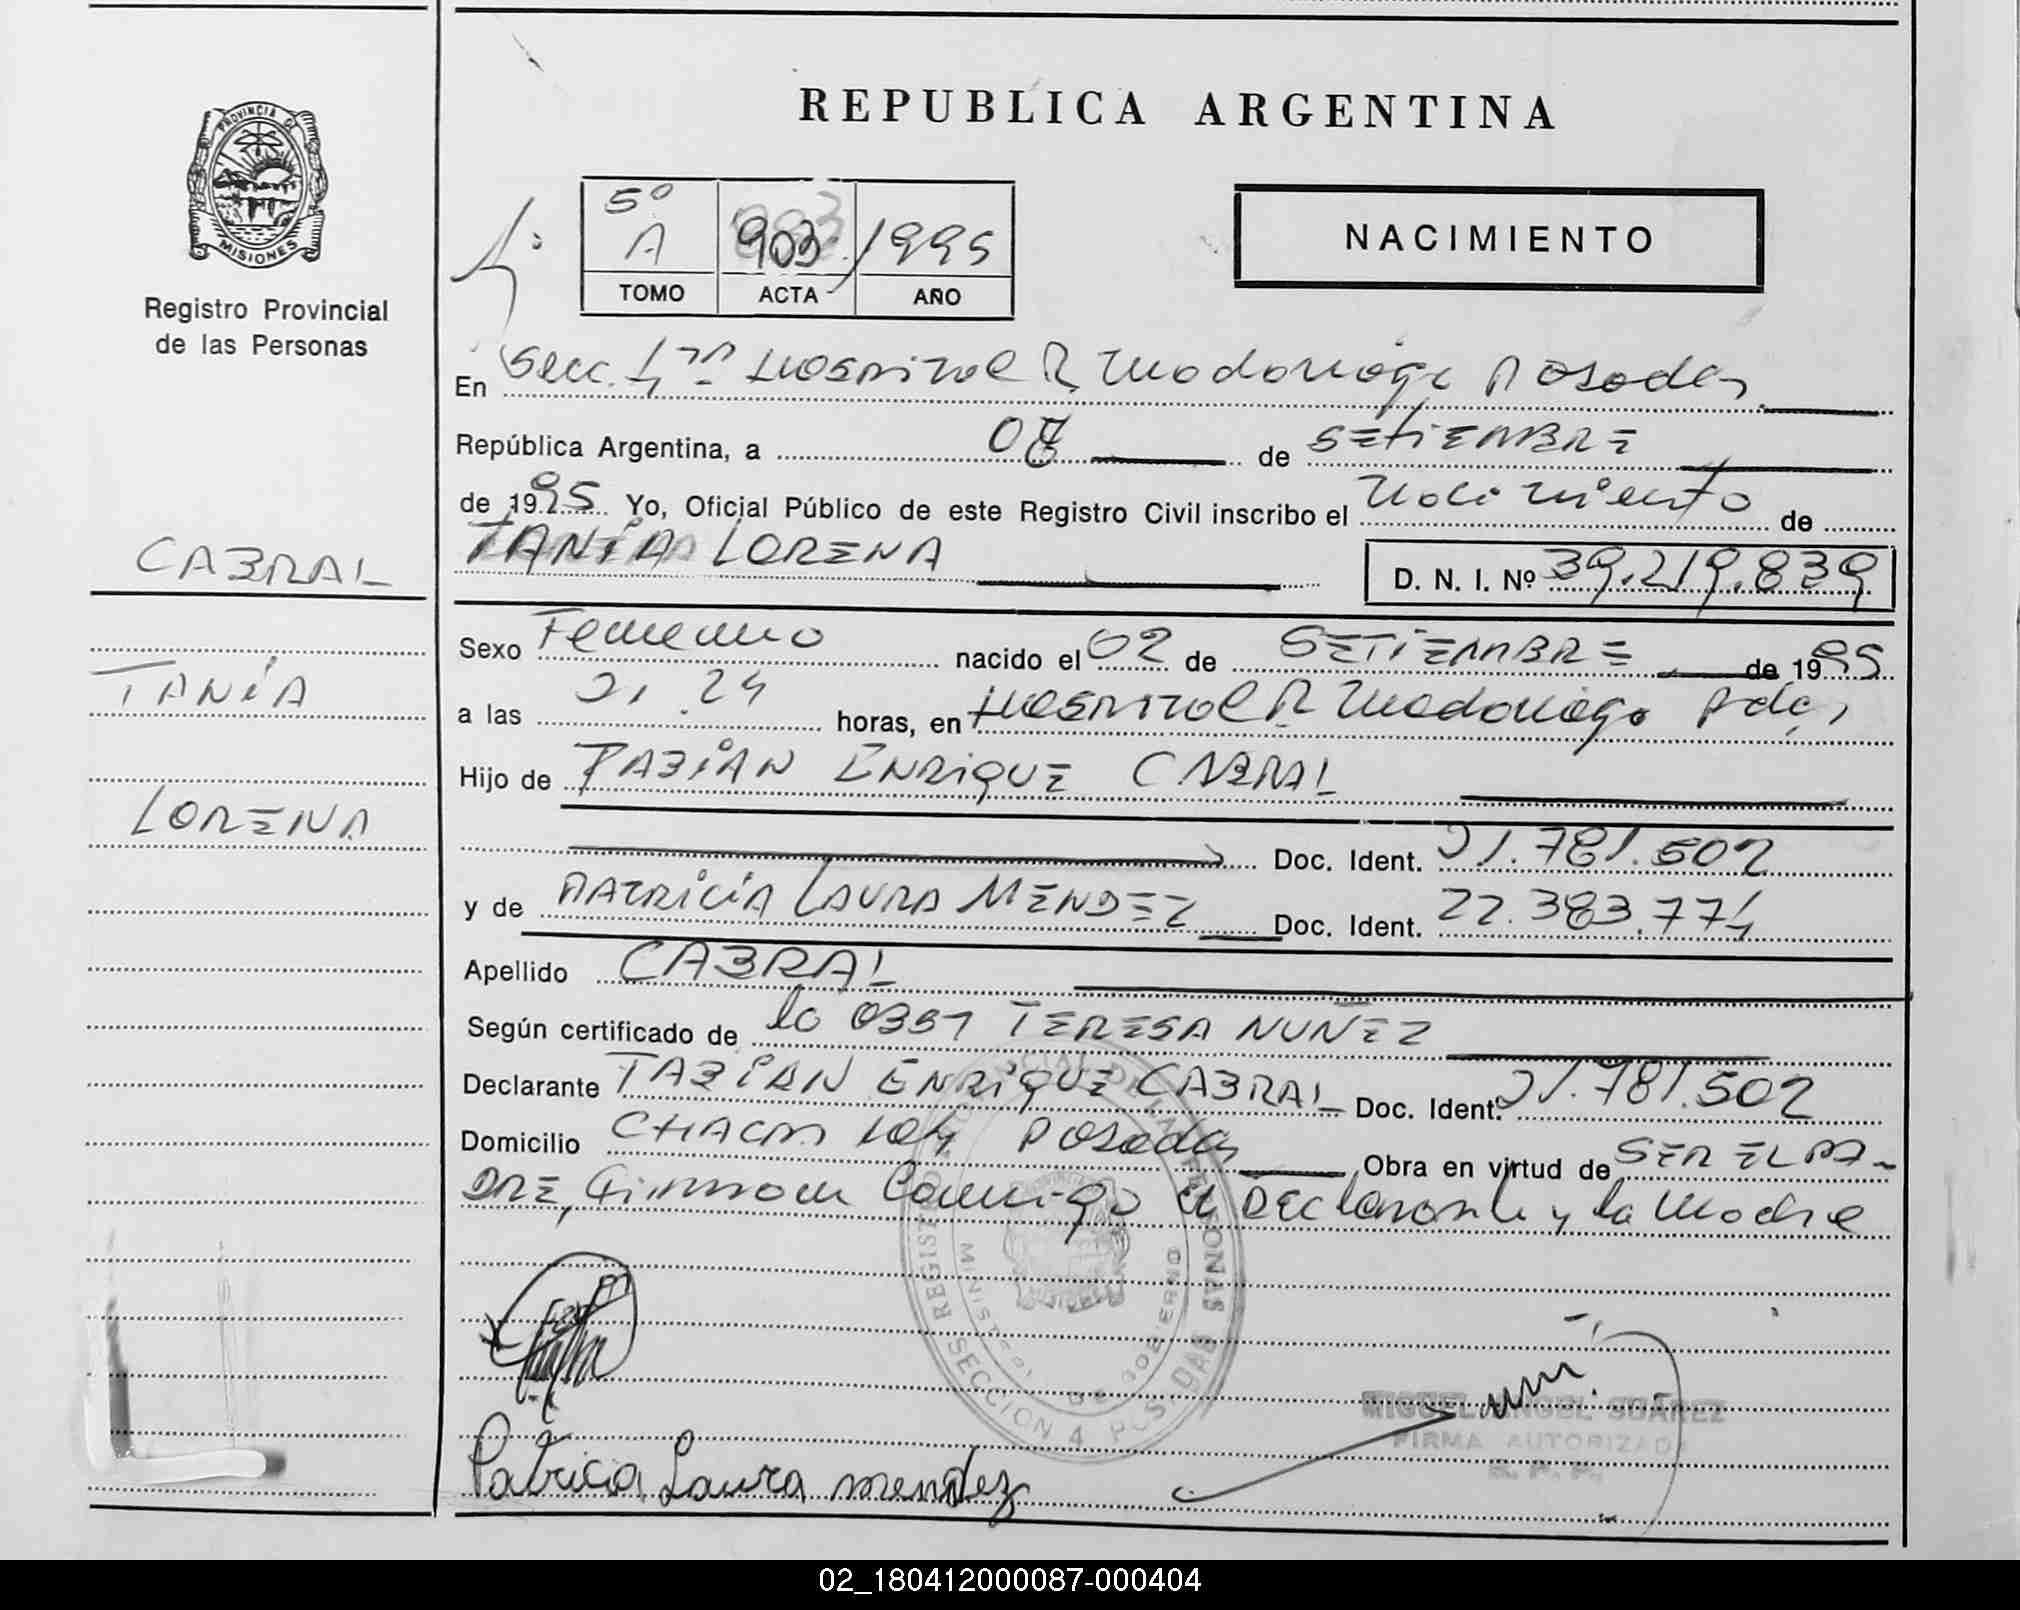 PROVINCIA DE
MISIONES
Registro Provincial
de las Personas
CABRAL
TANIA
LORENA
REPUBLICA ARGENTINA
5º
A 903 1995
TOMO ACTA AÑO
NACIMIENTO
En Secc. 4ta Hospital R Madariaga Posadas
República Argentina, a 07 de SETIEMBRE
de 1995 Yo, Oficial Público de este Registro Civil inscribo el Nacimiento de
TANIA LORENA D. N. I. Nº 39.219.839
Sexo Femenino nacido el 02 de SETIEMBRE de 1995
a las 21.24 horas, en Hospital R Madariaga Pdas
Hijo de FABIAN ENRIQUE CABRAL
Doc. Ident. 21.781.502
y de PATRICIA LAURA MENDEZ Doc. Ident. 22.383.774
Apellido CABRAL
Según certificado de la OBST TERESA NUÑEZ
Declarante FABIAN ENRIQUE CABRAL Doc. Ident. 21.781.502
Domicilio CHACRA 104 Posadas Obra en virtud de SER EL PA-
DRE, Firman Conmigo el DEClarante y la Madre
MINISTERIO DE GOBIERNO
SECCION 4 POSADAS
MIGUEL ANGEL SUÁREZ
FIRMA AUTORIZADA
R. P. P.
Patricia Laura mendez
02_180412000087-000404